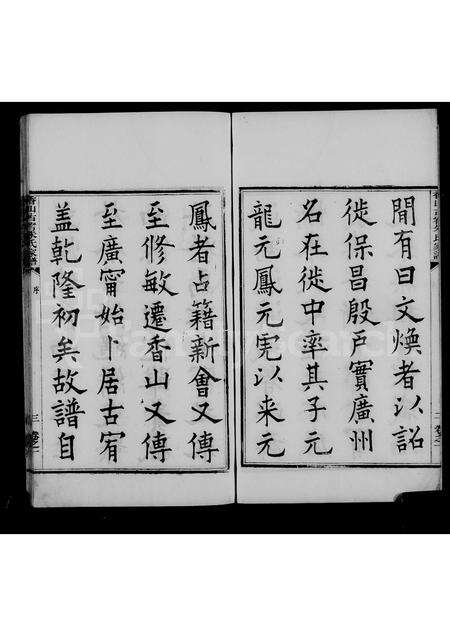 間有曰文煥者以詔
徙保昌殷戶實廣州
名在徙中率其子元
龍元鳳元寃以來元
鳳者占籍新會又傳
至修敏遷香山又傳
至廣甯始卜居古宥
蓋乾隆初矣故譜自
序
三
卷之一